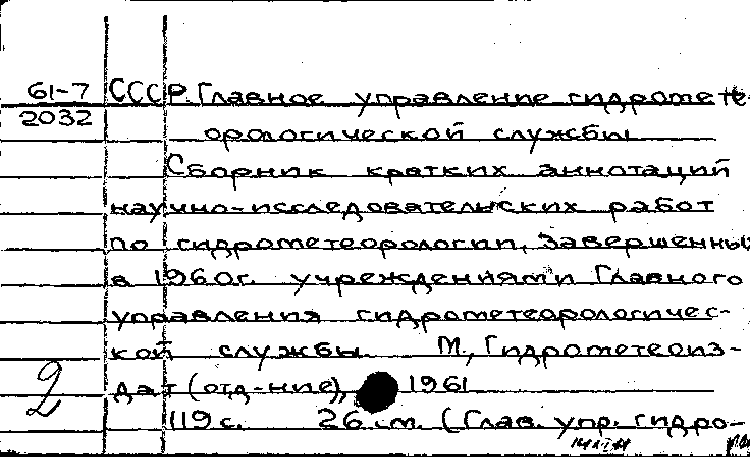 61-7 СССР. Главное управление гидромете-
2032
орологической службы
Сборник кратких аннотаций
научно-исследовательских работ
по гидрометеорологии, завершенных
в 1960г. учреждениями Главного
управления гидрометеорологичес-
кой службы. М., Гидрометеоиз-
2 дат (отд-ние), 1961
119 с. 26 см. (Глав. упр. гидро-